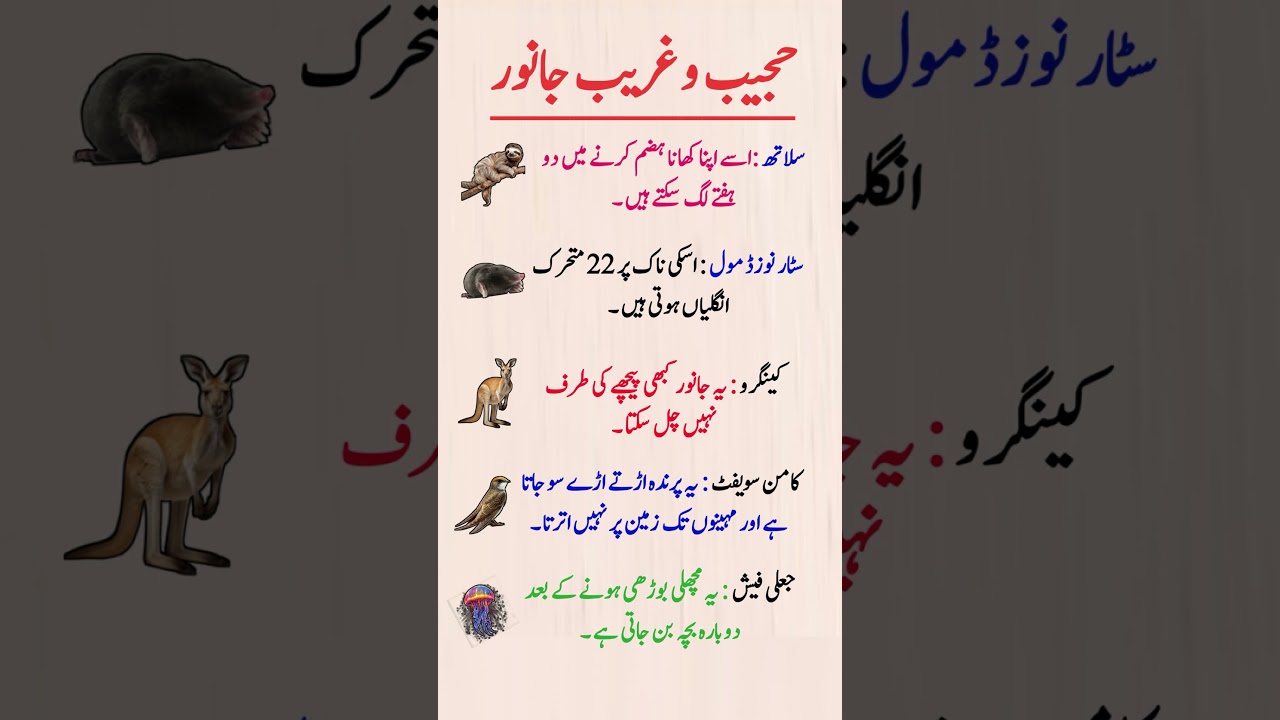 حجیب و غریب جانور
سلاتھ :اسے اپنا کھانا ہضم کرنے میں دو
ہفتے لگ سکتے ہیں۔
سٹار نوزڈ مول : اسکی ناک پر 22 متحرک
انگلیاں ہوتی ہیں۔
کینگرو : یہ جانور کبھی پیچھے کی طرف
نہیں چل سکتا۔
کامن سویفٹ : یہ پرندہ اڑتے اڑے سو جاتا
ہے اور مہینوں تک زمین پر نہیں اترتا۔
جعلی فیش : یہ مچھلی بوڑھی ہونے کے بعد
دوبارہ بچہ بن جاتی ہے۔